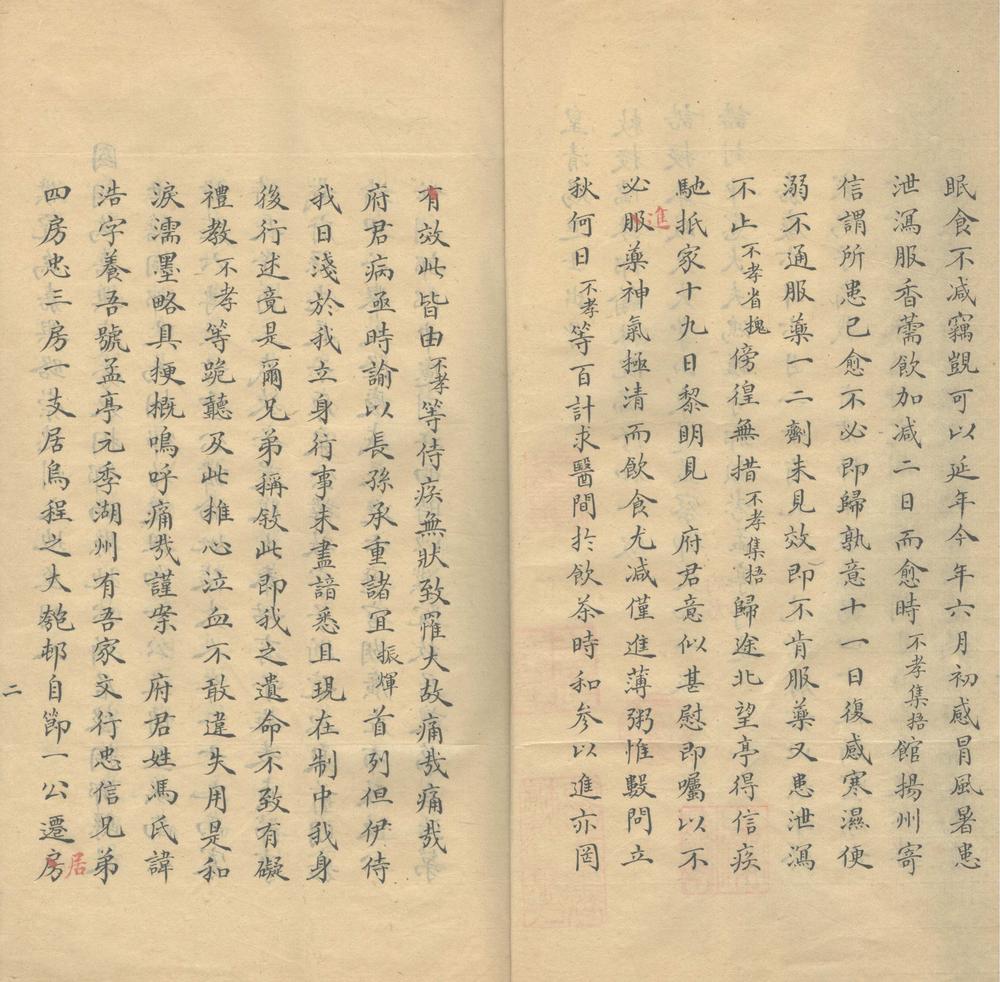 眠食不减竊覬可以延年今年六月初感冒風暑患
泄瀉服香薷飲加减二日而愈時不孝集捂館揚州寄
信謂所患已愈不必即歸孰意十一日復感寒濕便
溺不通服藥一二劑未見效即不肯服藥又患泄瀉
不止不孝省槐傍徨無措不孝集捂歸途北望亭得信疾
馳抵家十九日黎明見 府君意似甚慰即囑以不
必服藥神氣極清而飲食尤减僅進薄粥惟數問立
進
秋何日不孝等百計求醫間扵飲茶時和参以進亦罔
有效此皆由不孝等侍疾無狀致罹大故痛哉痛哉
府君病亟時諭以長孫承重諸冝振煇首列但伊侍
我日淺於我立身行事未盡諳悉且現在制中我身
後行述竟是爾兄弟稱敘此即我之遺命不致有礙
禮教不孝等跪聽及此摧心泣血不敢違失用是和
淚濡墨略具梗概嗚呼痛哉謹案 府君姓馮氏諱
浩字養吾號孟亭元季湖州有吾家文行忠信兄弟
四房忠三房一支居烏程之大匏邨自節一公遷房
居
二